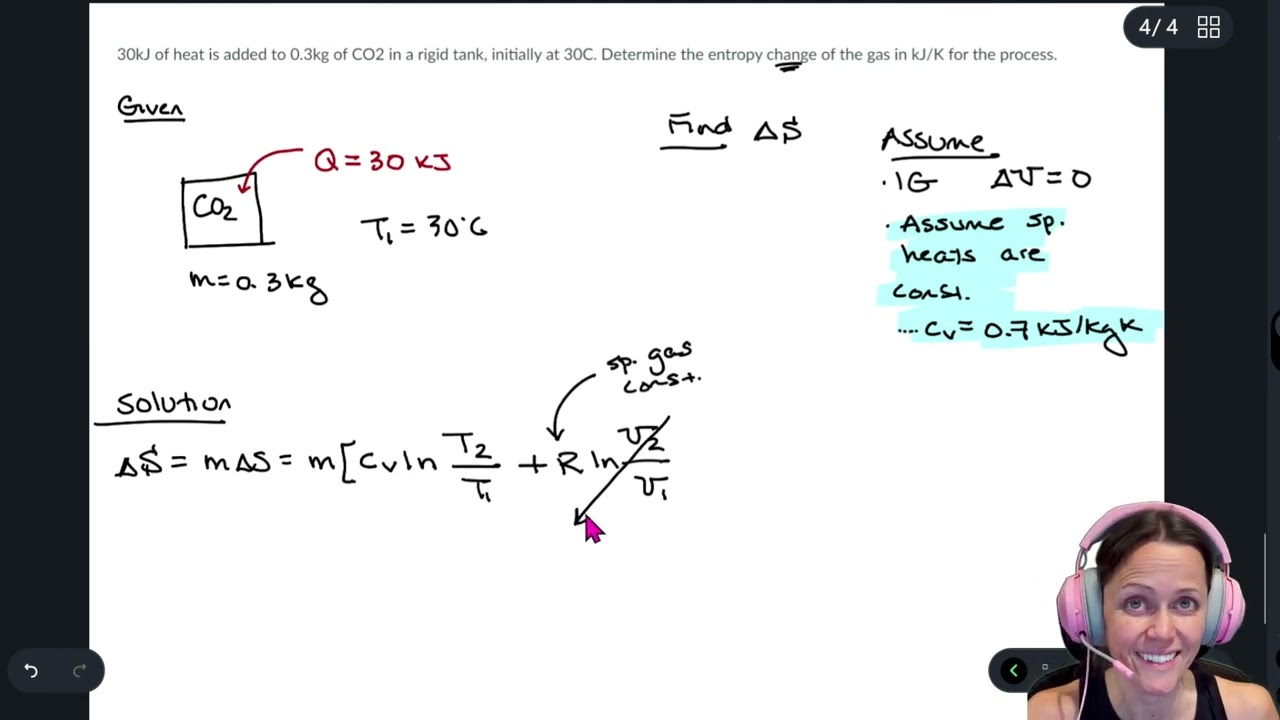 4/4
30kJ of heat is added to 0.3kg of CO2 in a rigid tank, initially at 30C. Determine the entropy change of the gas in kJ/K for the process.
Given
Find ΔS
Assume
Q = 30 kJ
· IG ΔV = 0
CO2
T1 = 30°C
· Assume sp.
heats are
const.
m = 0.3 kg
.... Cv = 0.7 kJ/kgK
sp. gas
const.
Solution
ΔS = mΔs = m[Cv ln T2/T1 + R ln V2/V1